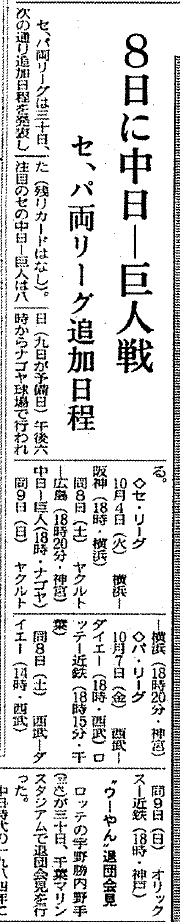 8日に中日―巨人戦
セ、パ両リーグ追加日程
セ、パ両リーグは三十日、
次の通り追加日程を発表し
た（残りカードはなし）。
注目のセの中日―巨人は八
日（九日が予備日）午後六
時からナゴヤ球場で行われ
る。
◇セ・リーグ
10月4日（火） 横浜―
阪神（18時・横浜）
同8日（土） ヤクルト
―広島（18時20分・神宮）
中日―巨人（18時・ナゴヤ）
同9日（日） ヤクルト
―横浜（18時20分・神宮）
◇パ・リーグ
10月7日（金） 西武―
ダイエー（18時・西武）ロ
ッテ―近鉄（18時15分・千
葉）
同8日（土） 西武―ダ
イエー（14時・西武）
同9日（日） オリック
ス―近鉄（18時・神戸）
“ウーやん”退団会見
ロッテの宇野勝内野手
が三十日、千葉マリン
スタジアムで退団会見を行
った。
中日時代の一九八四年に